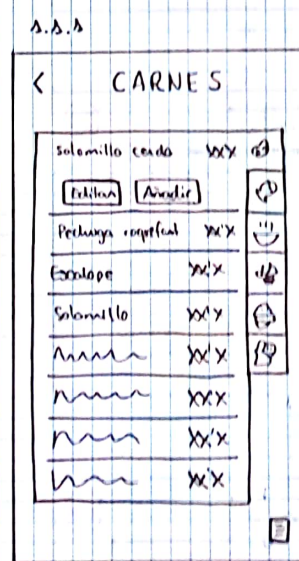 1.1.1
< CARNES
Solomillo cerdo XX'X
Editar Añadir
Pechuga roquefort XX'X
Escalope XX'X
Solomillo XX'X
XX'X
XX'X
XX'X
XX'X